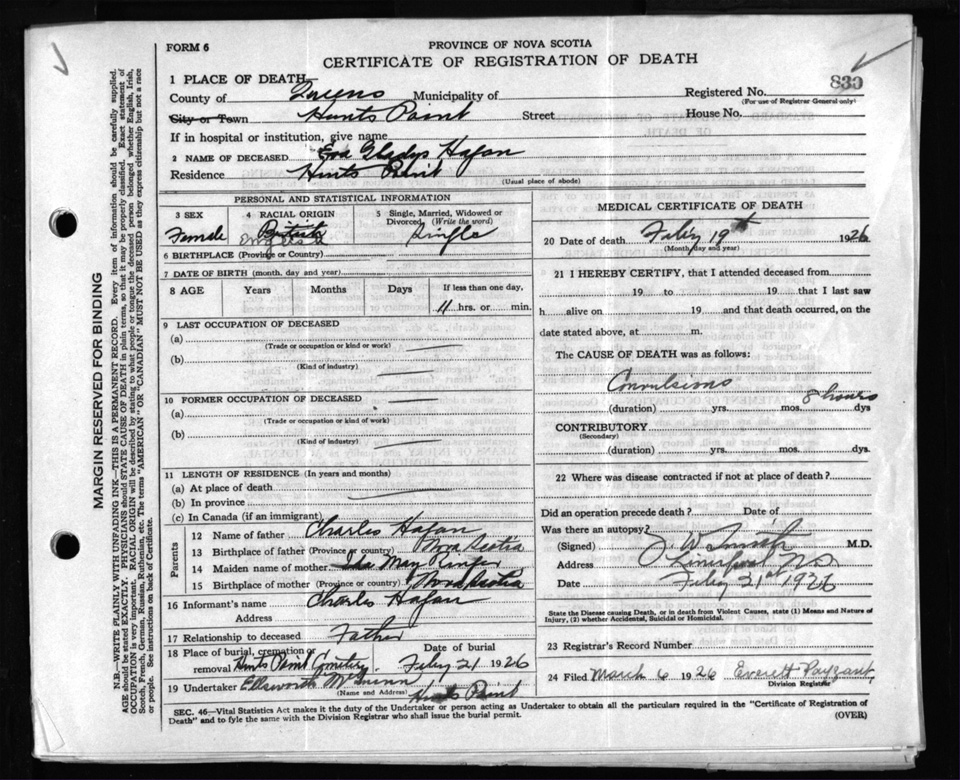 FORM 6
PROVINCE OF NOVA SCOTIA
CERTIFICATE OF REGISTRATION OF DEATH
830
MARGIN RESERVED FOR BINDING
N.B.—WRITE PLAINLY WITH UNFADING INK—THIS IS A PERMANENT RECORD. Every item of information should be carefully supplied.
AGE should be stated EXACTLY. PHYSICIANS should STATE CAUSE OF DEATH in plain terms, so that it may be properly classified. Exact statement of
OCCUPATION is very important. RACIAL ORIGIN will be described by stating to what people or tongue the deceased person belonged whether English, Irish,
Scotch, French, German, Russian, Ruthenian, etc. The terms "AMERICAN" OR "CANADIAN" MUST NOT BE USED as they express citizenship but not a race
or people. See instructions on back of Certificate.
1 PLACE OF DEATH—
County of Queens Municipality of
Registered No.
(For use of Registrar General only)
City or Town Hunts Point Street House No.
If in hospital or institution, give name
2 NAME OF DECEASED Eva Gladys Hafan
Residence Hunts Point
(Usual place of abode)
PERSONAL AND STATISTICAL INFORMATION
3 SEX
Female
4 RACIAL ORIGIN
English
5 Single, Married, Widowed or Divorced, (Write the word)
Single
6 BIRTHPLACE (Province or Country)
7 DATE OF BIRTH (month, day and year)
8 AGE Years Months Days If less than one day,
11 hrs. or min.
9 LAST OCCUPATION OF DECEASED
(a)
(Trade or occupation or kind or work)
(b)
(Kind of industry)
10 FORMER OCCUPATION OF DECEASED
(a)
(Trade or occupation or kind of work)
(b)
(Kind of industry)
11 LENGTH OF RESIDENCE (In years and months)
(a) At place of death
(b) In province
(c) In Canada (if an immigrant)
Parents
12 Name of father Charles Hafan
13 Birthplace of father (Province or country) Nova Scotia
14 Maiden name of mother May
15 Birthplace of mother (Province or country) Nova Scotia
16 Informant's name Charles Hafan
Address
17 Relationship to deceased Father
18 Place of burial, cremation or removal Hunts Point Cemetery
Date of burial
Feby 21 1926
19 Undertaker Ellsworth
(Name and Address) Hunts Point
MEDICAL CERTIFICATE OF DEATH
20 Date of death Feby 19th 1926
(Month, day and year)
21 I HEREBY CERTIFY, that I attended deceased from
19 to 19 that I last saw
h alive on 19 and that death occurred, on the
date stated above, at m.
The CAUSE OF DEATH was as follows:
Convulsions
(duration) yrs. mos. 8 hours dys
CONTRIBUTORY
(Secondary)
(duration) yrs. mos. dys.
22 Where was disease contracted if not at place of death?
Did an operation precede death? Date of
Was there an autopsy?
(Signed) J. W. Smith M.D.
Address Liverpool N.S.
Date Feby 21st 1926
State the Disease causing Death, or in death from Violent Causes, state (1) Means and Nature of
Injury, (2) whether Accidental, Suicidal or Homicidal.
23 Registrar's Record Number
24 Filed March 6 1926 Everett Payzant
Division Registrar
SEC. 46—Vital Statistics Act makes it the duty of the Undertaker or person acting as Undertaker to obtain all the particulars required in the "Certificate of Registration of
Death" and to fyle the same with the Division Registrar who shall issue the burial permit.
(OVER)